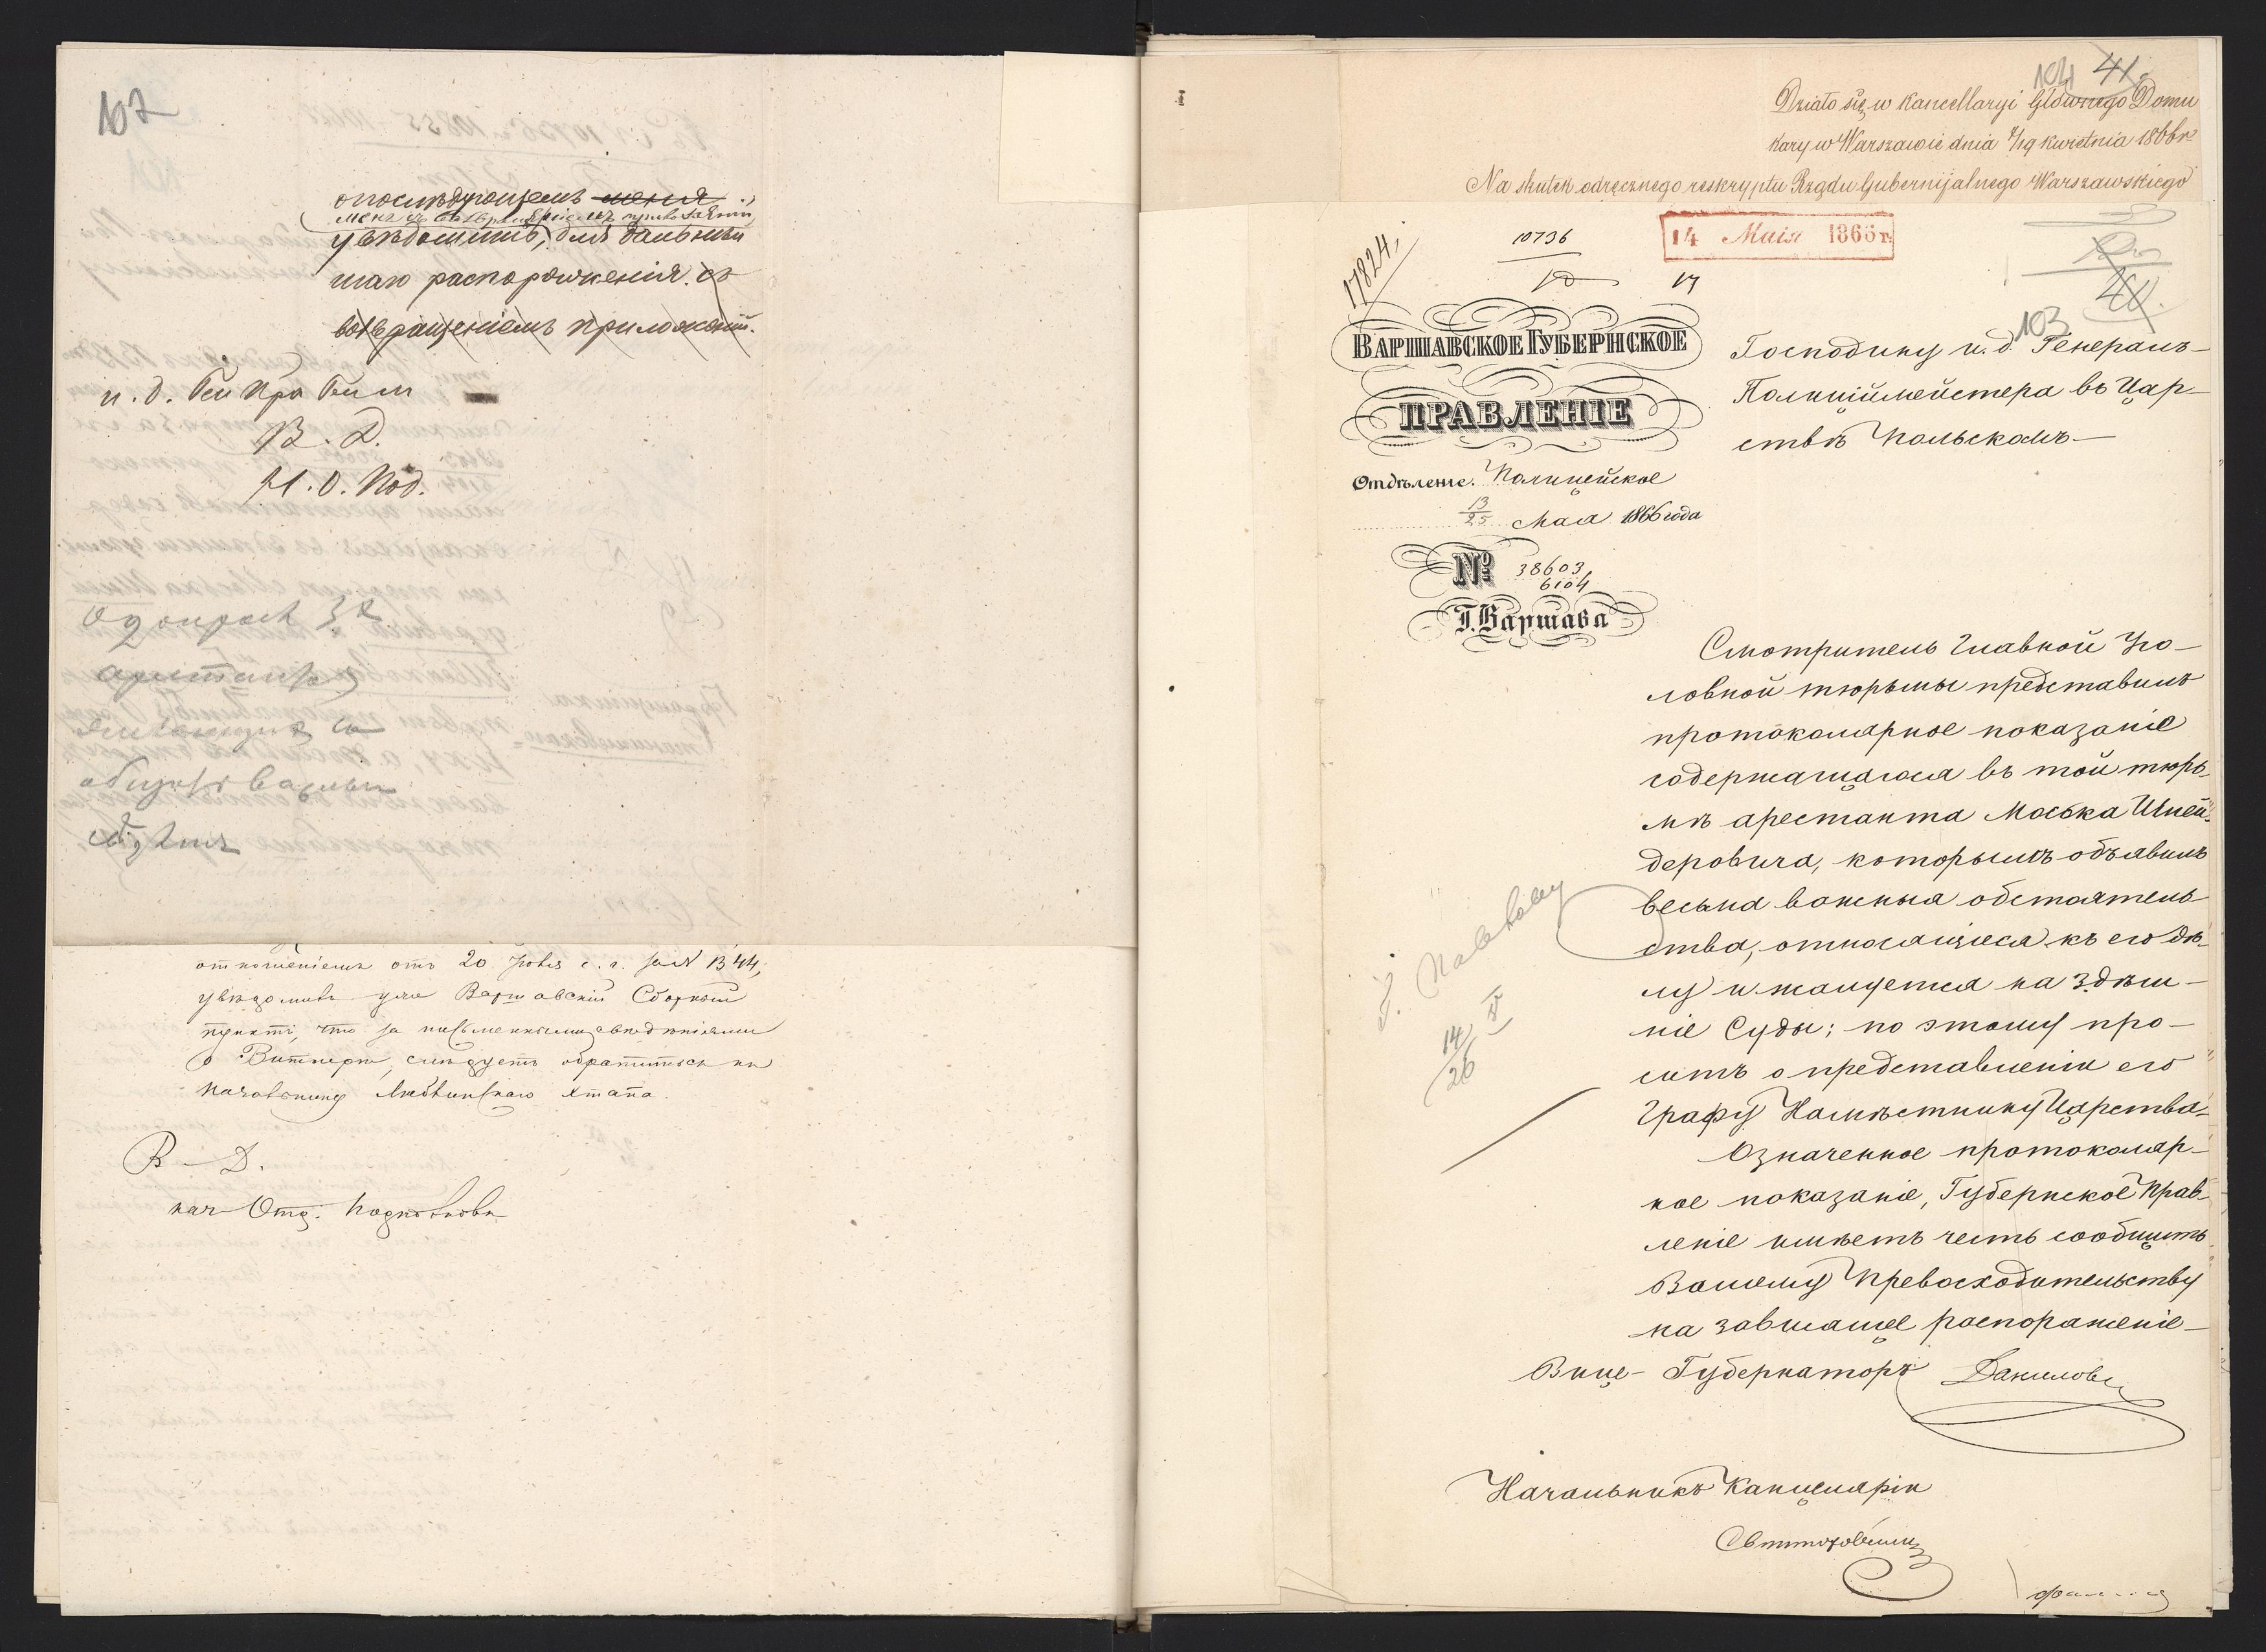 107
о послѣдующемъ меня
меня съ возвращеніемъ приложеній
увѣдомить, для дальнѣй
шаго распоряженія съ
возвращеніемъ приложеній.
и. д. Ген Пол
В. Д.
Н. О. Под.
арестанта
отношеніемъ отъ 20 с. г. за № 1344,
увѣдомивъ уже Варшавскій Сборный
пунктъ, что за письменными свѣдѣніями
о слѣдуетъ обратиться къ
Начальнику этапа.
В Д.
нач Отд.
104 41
Działo się w Kancellaryi Głównego Domu
Kary w Warszawie dnia 7/19 Kwietnia 1866 r
Na skutek odręcznego reskryptu Rządu Gubernijalnego Warszawskiego
17824
10736
14 Маія 1866 г.
103
ВАРШАВСКОЕ ГУБЕРНСКОЕ
ПРАВЛЕНІЕ
Отдѣленіе. Полицейское
13/25 Мая 1866 года
№ 38603/6104
Г. Варшава
Господину и. д. Генералъ-
Полицiймейстера въ Цар-
ствѣ Польскомъ
Смотритель Главной Уго-
ловной тюрьмы представилъ
протоколярное показаніе
содержащагося въ той тюрь-
мѣ арестанта Моська Шней-
деровича, которымъ объявилъ
весьма важныя обстоятель-
ства, относящіеся къ его дѣ-
лу и жалуется на здѣш-
ніе Суды; по этому про-
ситъ о представленіи его
Графу Намѣстнику Царства
14/26 V
Означенное протоколяр-
ное показаніе, Губернское Прав-
леніе имѣетъ честь сообщить
Вашему Превосходительству
на зависящее распоряженіе
Вице-Губернаторъ Даниловъ
Начальникъ Канцеляріи